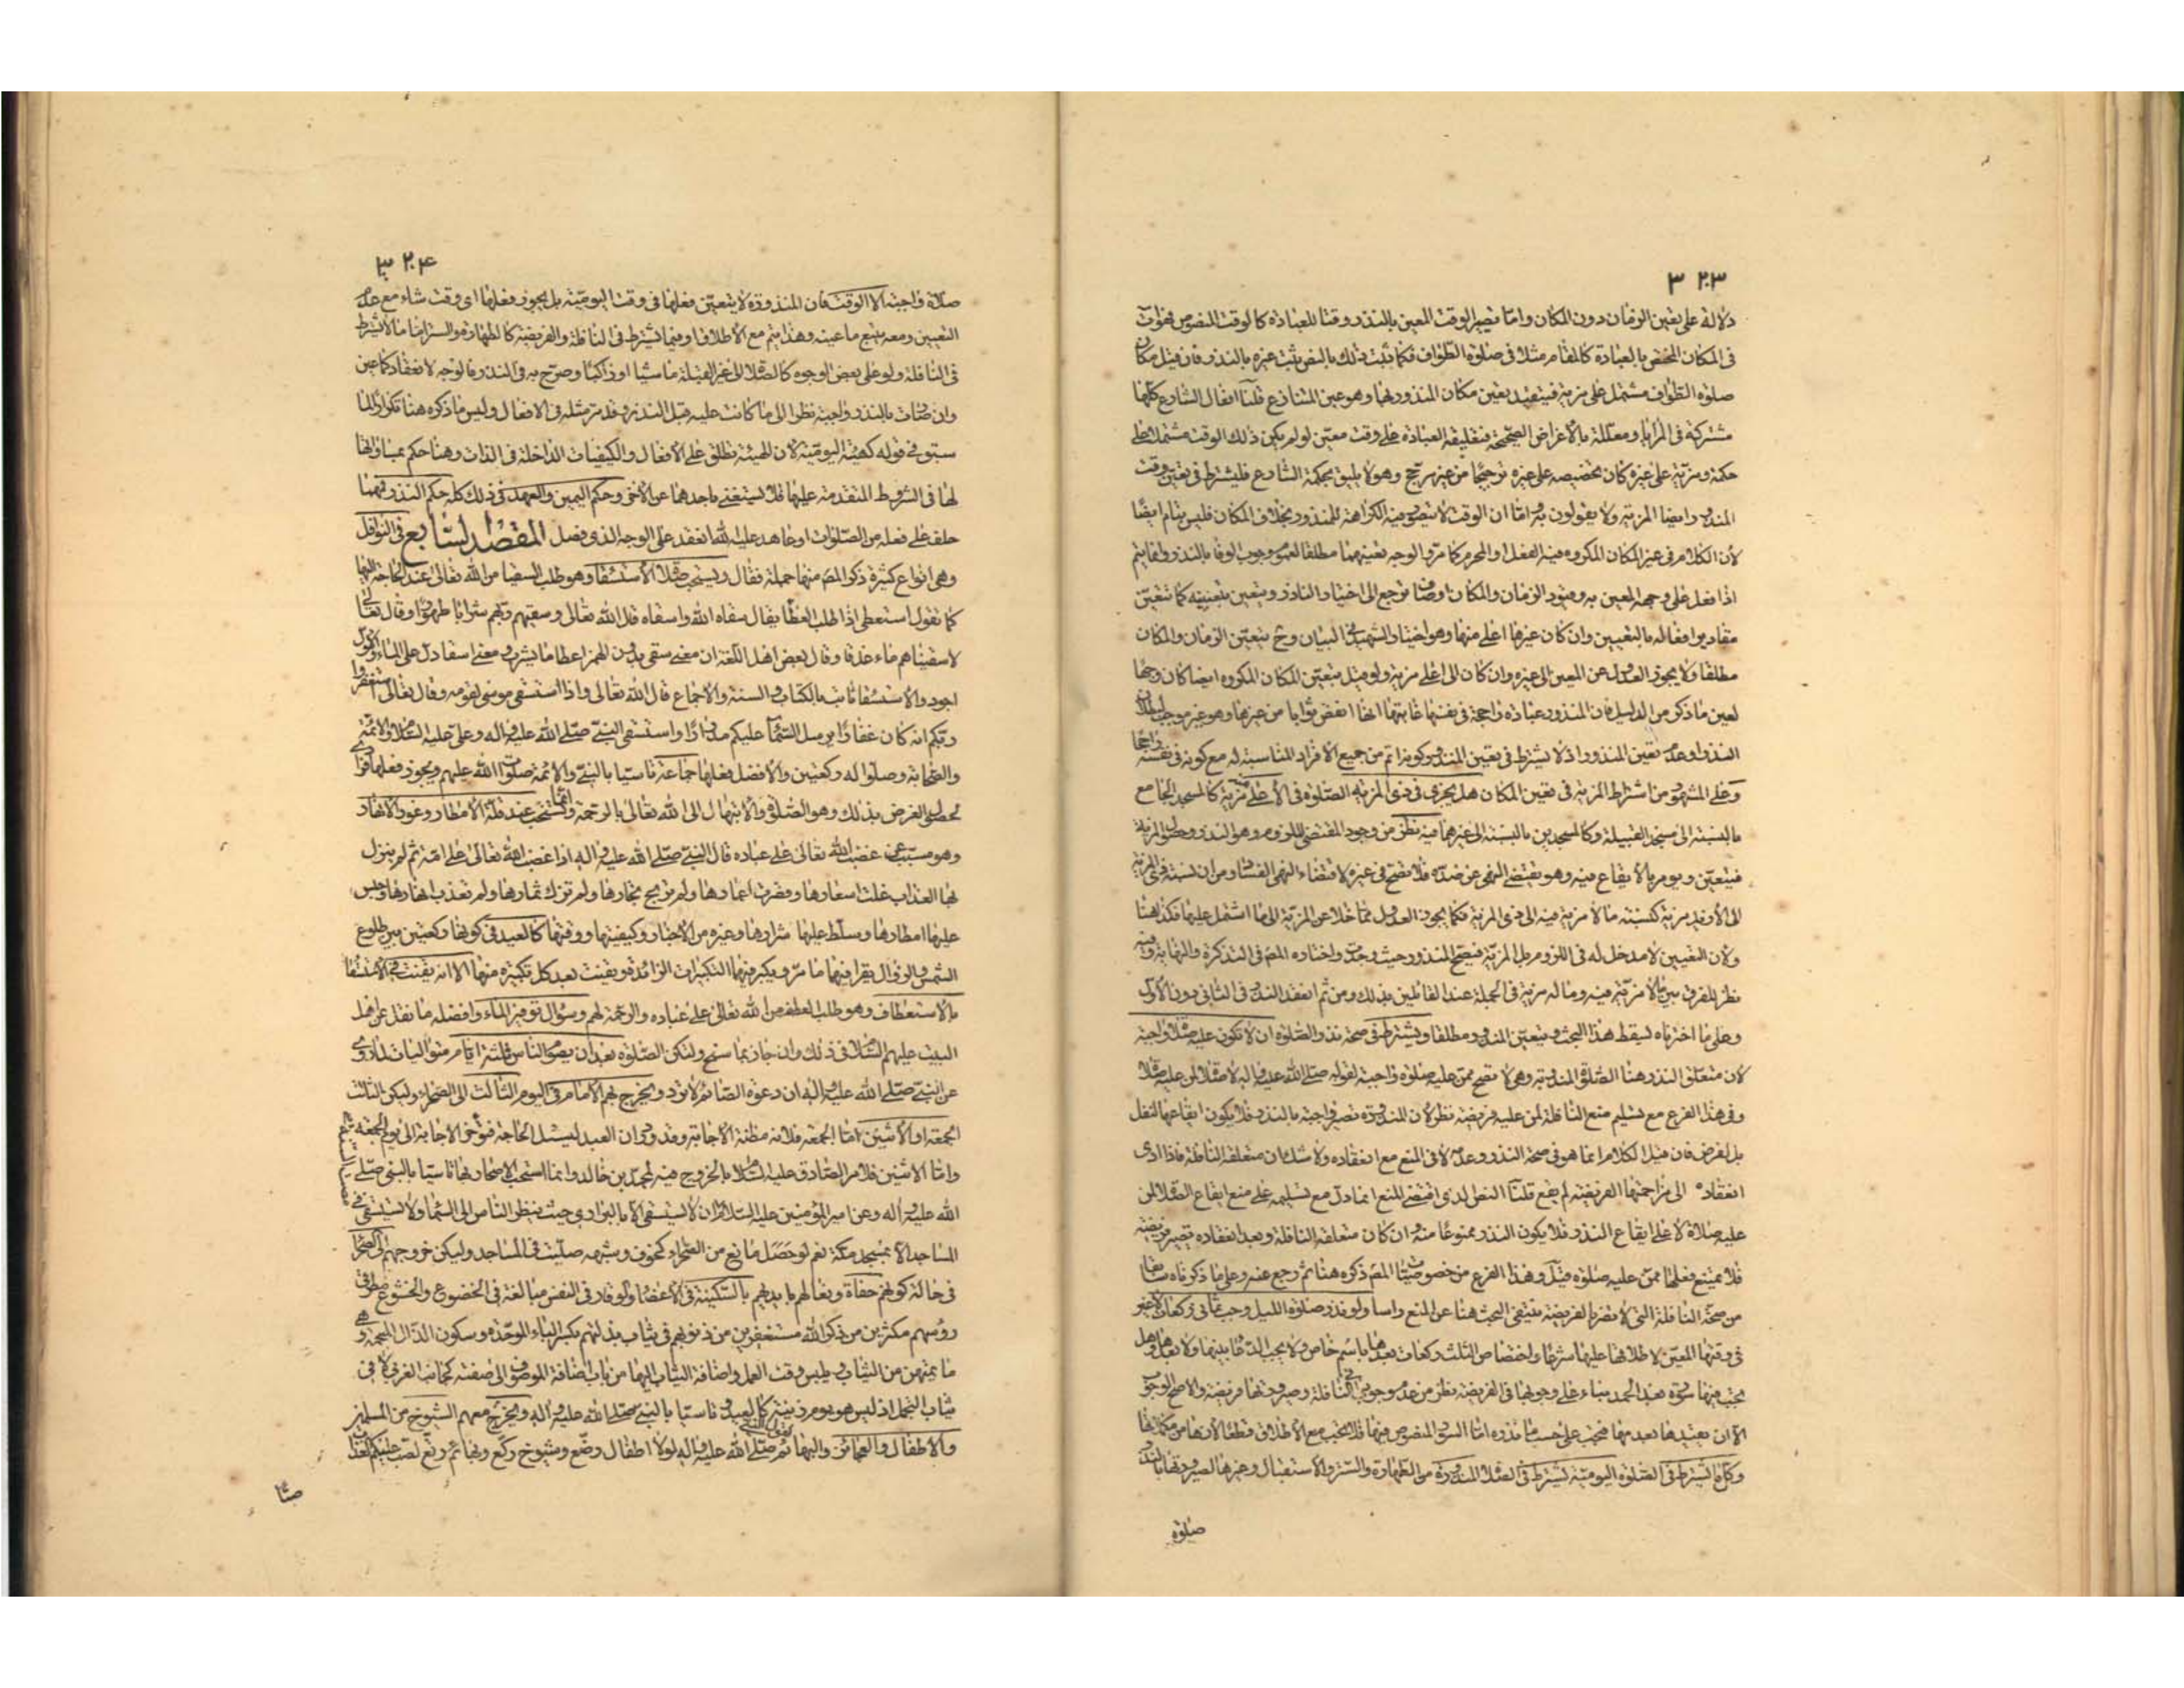 ٣٢٠٣
دلالة على تعين الزمان دون المكان واما تصير الوقت المعين بالنذر وقتا للعبادة كالوقت المنصوص فهو آت
فى المكان المختص بالعبادة كالمقام مثلا فى صلوة الطواف فكما ثبت ذلك بالنص ثبت غيره بالنذر فان قيل مكان
صلوة الطواف مشتمل على مزية فيتقيد بتعين مكان المنذور بها وهو عين المتنازع قلنا افعال الشارع كلها
مشتركة فى المزايا ومعللة بالاغراض الصحيحة فتعليقه العبادة على وقت معين لو لم يكن ذلك الوقت مشتملا على
حكمة ومزية على غيره كان تخصيصه على غيره ترجيحا من غير مرجح وهو لا يليق بحكمة الشارع فليشترط فى تعين وقت
المنذور ايضا المزية ولا يقولون به واما ان الوقت لا يتصور فيه الكراهة للمنذور بخلاف المكان فليس بتام ايضا
لان الكلام فى غير المكان المكروه فيه الفعل او المحرم كما مر والوجه تعينهما مطلقا لعموم وجوب الوفا بالنذر وانما يتم
اذا فعل على وجهه المعين به وقيود الزمان والمكان اوصاف ترجع الى اختيار الناذر ويتعين بتعيينه كما تتعين
مقادير افعاله بالتعيين وان كان غيرها اعلى منها وهو اختيار الشهيد فى البيان وح يتعين الزمان والمكان
مطلقا ولا يجوز العدول عن المعين الى غيره وان كان الى اعلى مزية ولو قيل بتعين المكان المكروه ايضا كان وجها
لعين ما ذكر من الدليل فان المنذور عبادة راجحة فى نفسها غايتها انها انقص ثوابا من غيرها وهو غير موجب لبطلان
النذر او عدم تعين المنذور اذ لا يشترط فى تعين المنذور كونه اتم من جميع الافراد المناسبة له مع كونه فى نفسه راجحا
وعلى المشهور من اشتراط المزية فى تعين المكان هل يجزى فى ذى المزية الصلوة فى الاعلى مزية كالمسجد الجامع
بالنسبة الى مسجد القبيلة وكالمسجدين بالنسبة الى غيرهما فيه نظر من وجود المقتضى للزوم وهو النذر وحصول المزية
فيتعين ويؤمر بالايقاع فيه وهو يقتضى النهى عن ضده فلا تصح فى غيره لاقتضاء النهى الفساد ومن ان نسبة ذى المزية
الى الازيد مزية كنسبة ما لا مزية فيه الى ذى المزية فكما يجوز العدول مما خلا عن المزية الى ما اشتمل عليها فكذا هنا
ولان التعيين لا مدخل له فى اللزوم بل المزية فيصح المنذور حيث وجدت واختاره المص فى التذكرة والنهاية وفيه
نظر للفرق بين ما لا مزية فيه وما له مزية فى الجملة عند القائلين بذلك ومن ثم انعقد النذر فى الثانى دون الاول
وعلى ما اخترناه يسقط هذا البحث ويتعين المنذور مطلقا ويشترط فى صحة نذر الصلوة ان لا تكون عليه صلاة واجبة
لان متعلق النذر هنا الصلوة المندوبة وهى لا تصح ممن عليه صلوة واجبة لقوله صلى الله عليه وآله لا صلاة لمن عليه صلاة
وفى هذا الفرع مع تسليم منع النافلة لمن عليه فريضة نظر لان المنذورة تصير واجبة بالنذر فلا يكون ايقاعها لنفل
بل لفرض فان قيل الكلام انما هو فى صحة النذر وعدمه لا فى المنع مع انعقاده ولا شك ان متعلقه النافلة فاذا ادى
انعقاده الى مزاحمتها الفريضة لم يقع قلنا النص الذى اقتضى المنع انما دل مع تسليمه على منع ايقاع الصلاة لمن
عليه صلاة لا على ايقاع النذر فلا يكون النذر ممنوعا منه وان كان متعلقه النافلة وبعد انعقاده يصير فريضة
فلا يمتنع فعلها ممن عليه صلوة قبل وهذا الفرع من خصوصيات المص ذكره هنا ثم رجع عنه وعلى ما ذكرناه سابقا
من صحة النافلة التى لا تضر بالفريضة ينتفى البحث هنا عن المنع راسا ولو نذر صلوة الليل وجب ثمانى ركعات لا غير
فى وقتها المعين لاطلاقها عليها شرعا واختصاص الثلث ركعات بعدها باسم خاص ولا يجب الدعا بينها ولا بعدها وهل
يجب فيها سورة بعد الحمد بناء على وجوبها فى الفريضة نظر من عدم وجوبها فى النافلة وصيرورتها فريضة والاصح الوجوب
الا ان يقيدها بعدمها فيجب على حسب ما نذره اما السور المنصوص فيها فلا يجب مع الاطلاق قطعا لانها من مكملاتها
وكل ما يشترط فى الصلوة اليومية يشترط فى الصلاة المنذورة من الطهارة والستر والاستقبال وغيرها لصيرورتها بالنذر
صلوة
٣٢٠٤
صلاة واجبة الا الوقت فان المنذورة لا يتعين فعلها فى وقت اليومية بل يجوز فعلها اى وقت شاء مع عدم
التعيين ومعه يتبع ما عينه وهذا يتم مع الاطلاق او فيما تشترط فى النافلة والفريضة كالطهارة والستر اما ما لا يشترط
فى النافلة ولو على بعض الوجوه كالصلاة الى غير القبلة ماشيا او راكبا وصرح به فى النذر فالوجه الانعقاد كما عين
وان صارت بالنذر واجبة نظرا الى ما كانت عليه قبل النذر وقد مر مثله فى الافعال وليس ما ذكره هنا تكرارا لما
سبق فى قوله كهيئة اليومية لان الهيئة تطلق على الافعال والكيفيات الداخلة فى الذات وهنا حكم بمساواتها
لها فى الشروط المتقدمة عليها فلا يستغنى باحدهما عن الاخر وحكم اليمين والعهد فى ذلك كله حكم النذر فمتى
حلف على فعله من الصلوات او عاهد عليه الله انعقد على الوجه الذى فصل المقصد السابع فى النوافل
وهى انواع كثيرة ذكر المص منها جملة فقال ويستحب صلاة الاستسقا وهو طلب السقيا من الله تعالى عند الحاجة اليها
كما تقول استعطى اذا طلب العطا يقال سقاه الله واسقاه قال الله تعالى وسقيهم ربهم شرابا طهورا وقال تعالى
لاسقيناهم ماء غدقا وقال بعض اهل اللغة ان معنى سقى بدون الهمز اعطا ما يشرب ومعنى اسقا دل على الماء والاول
اجود والاستسقا ثابت بالكتاب والسنة والاجماع قال الله تعالى واذا استسقى موسى لقومه وقال تعالى استغفروا
ربكم انه كان غفارا يرسل السما عليكم مدرارا واستسقى النبى صلى الله عليه وآله وعلى عليه السلام والائمة
والصحابة وصلوا له ركعتين والافضل فعلها جماعة تاسيا بالنبى والائمة صلوات الله عليهم ويجوز فعلها فرادى
لحصول الغرض بذلك وهو الصلوة والابتهال الى الله تعالى بالرحمة وانما يستحب عند قلة الامطار وغور الانهار
وهو مسبب عن غضب الله تعالى على عباده قال النبى صلى الله عليه وآله اذا غضب الله تعالى على امة ثم لم ينزل
بها العذاب غلت اسعارها وقصرت اعمارها ولم تربح تجارها ولم تزك ثمارها ولم تعذب انهارها وحبس
عليها امطارها وسلط عليها شرارها وغيره من الاخبار وكيفيتها ووقتها كالعيد فى كونها ركعتين بين طلوع
الشمس والزوال يقرا فيهما ما مر ويكبر فيهما التكبيرات الزائدة ويقنت بعد كل تكبيرة منها الا انه يقنت فى الاستسقا
بالاستعطاف وهو طلب العطف من الله تعالى على عباده والرحمة لهم وسؤال توفير الماء وافضله ما نقل عن اهل
البيت عليهم السلام فى ذلك وان جاز بما سنح ولتكن الصلوة بعد ان يصوم الناس ثلثة ايام متواليات لما روى
عن النبى صلى الله عليه وآله ان دعوة الصائم لا ترد ويخرج بهم الامام فى اليوم الثالث الى الصحراء وليكن الثالث
الجمعة او الاثنين اما الجمعة فلانه مظنة الاجابة وقد روى ان العبد ليسئل الحاجة فتؤخر الاجابة الى يوم الجمعة
واما الاثنين فلامر الصادق عليه السلام بالخروج فيه لمحمد بن خالد وانما استحب الاصحار بها تاسيا بالنبى صلى
الله عليه وآله وعن امير المؤمنين عليه السلام ان لا يستسقى الا بالبرارى حيث ينظر الناس الى السما ولا يستسقى فى
المساجد الا بمسجد مكة نعم لو حصل مانع من الصحراء كخوف وشبهه صليت فى المساجد وليكن خروجهم الى الصحرا
فى حالة كونهم حفاة ونعالهم بايديهم بالسكينة فى الاعضا والوقار فى النفس مبالغة فى الخضوع والخشوع مطرقى
رؤسهم مكثرين من ذكر الله مستغفرين من ذنوبهم فى ثياب بذلتهم بكسر الباء الموحدة وسكون الذال المعجمة وهى
ما يمتهن من الثياب ويلبس وقت العمل واضافة الثياب اليها من باب اضافة الموصوف الى صفته كجانب الغربى لا فى
ثياب التجمل اذ ليس هو يوم زينة كالعيد تاسيا بالنبى صلى الله عليه وآله ويخرج معهم الشيوخ من المسلمين
والاطفال والعجائز والبهائم لقول النبى صلى الله عليه وآله لولا اطفال رضع وشيوخ ركع وبهائم رتع لصب عليكم العذاب
صبا